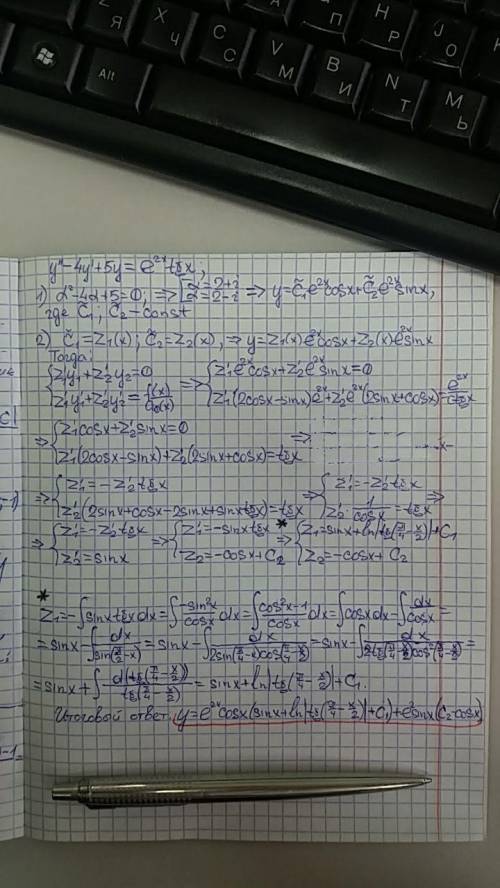 Z Я
X Ч
C С
V М
B И
N Т
M Ь
Alt
y'' - 4y' + 5y = e^{2x} tg x;
1) α² - 4α + 5 = 0, ⇒ [α = 2+i α = 2-i ⇒ y = C̃₁e^{2x}cosx + C̃₂e^{2x}sinx,
где C̃₁, C̃₂ - const
2) C̃₁ = z₁(x); C̃₂ = z₂(x), ⇒ y = z₁(x)e^{2x}cosx + z₂(x)e^{2x}sinx
Тогда:
{z₁'y₁ + z₂'y₂ = 0 ⇒ {z₁'e^{2x}cosx + z₂'e^{2x}sinx = 0
{z₁'y₁' + z₂'y₂' = f(x)/a₀(x) {z₁'(2cosx - sinx)e^{2x} + z₂'e^{2x}(2sinx + cosx) = e^{2x} tg x
⇒ {z₁'cosx + z₂'sinx = 0 ⇒
{z₁'(2cosx - sinx) + z₂'(2sinx + cosx) = tg x
⇒ {z₁' = -z₂' tg x ⇒ {z₁' = -z₂' tg x ⇒
{z₂'(2sinx + cosx - 2sinx + sinx tg x) = tg x {z₂' · 1/cosx = tg x
⇒ {z₁' = -z₂' tg x ⇒ {z₁' = -sinx tg x * ⇒ {z₁ = sinx + ln|tg(π/4 - x/2)| + C₁
{z₂' = sinx {z₂ = -cosx + C₂ {z₂ = -cosx + C₂
*
z₁ = -∫sinx tg x dx = ∫ -sin²x/cosx dx = ∫ cos²x-1/cosx dx = ∫cosx dx - ∫ dx/cosx =
= sinx - ∫ dx/sin(π/2 - x) = sinx - ∫ dx/2sin(π/4 - x/2)cos(π/4 - x/2) = sinx - ∫ dx/2tg(π/4 - x/2)cos²(π/4 - x/2) =
= sinx + ∫ d(tg(π/4 - x/2))/tg(π/4 - x/2) = sinx + ln|tg(π/4 - x/2)| + C₁.
Итоговый ответ: y = e^{2x}cosx(sinx + ln|tg(π/4 - x/2)| + C₁) + e^{2x}sinx(C₂ - cosx)